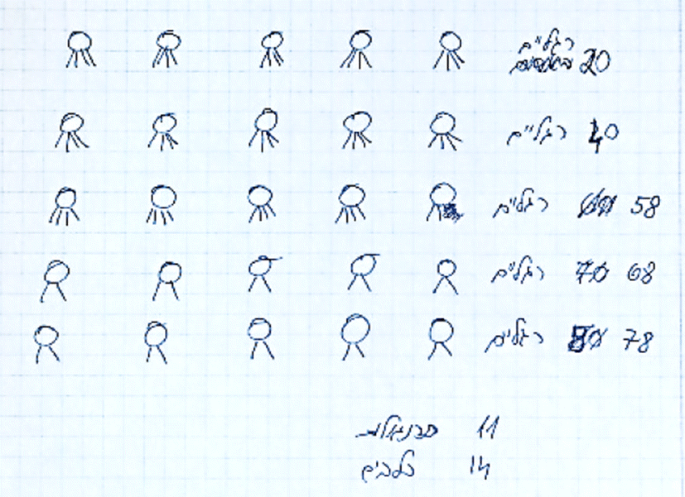 רגליים
20
רגליים 40
רגליים 58
רגליים 70 68
רגליים 80 78
תרנגולות 11
כלבים 14